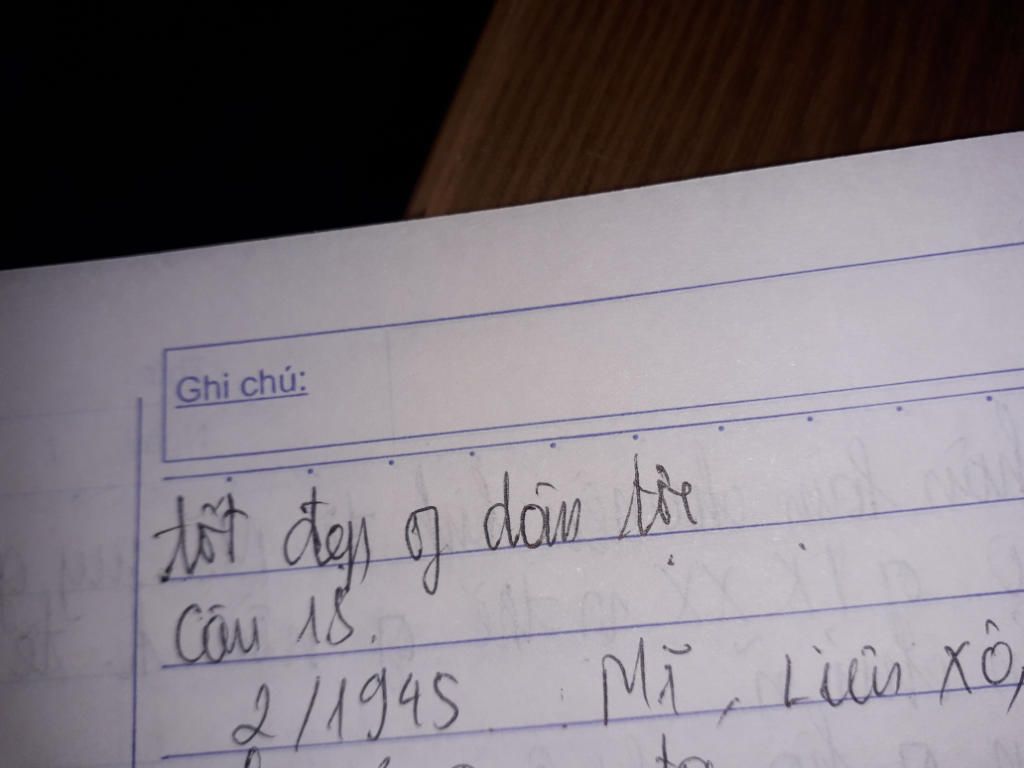 Ghi chú:
tốt đẹp of dân tộc
Câu 15.
2/1945 Mĩ, Liên Xô,